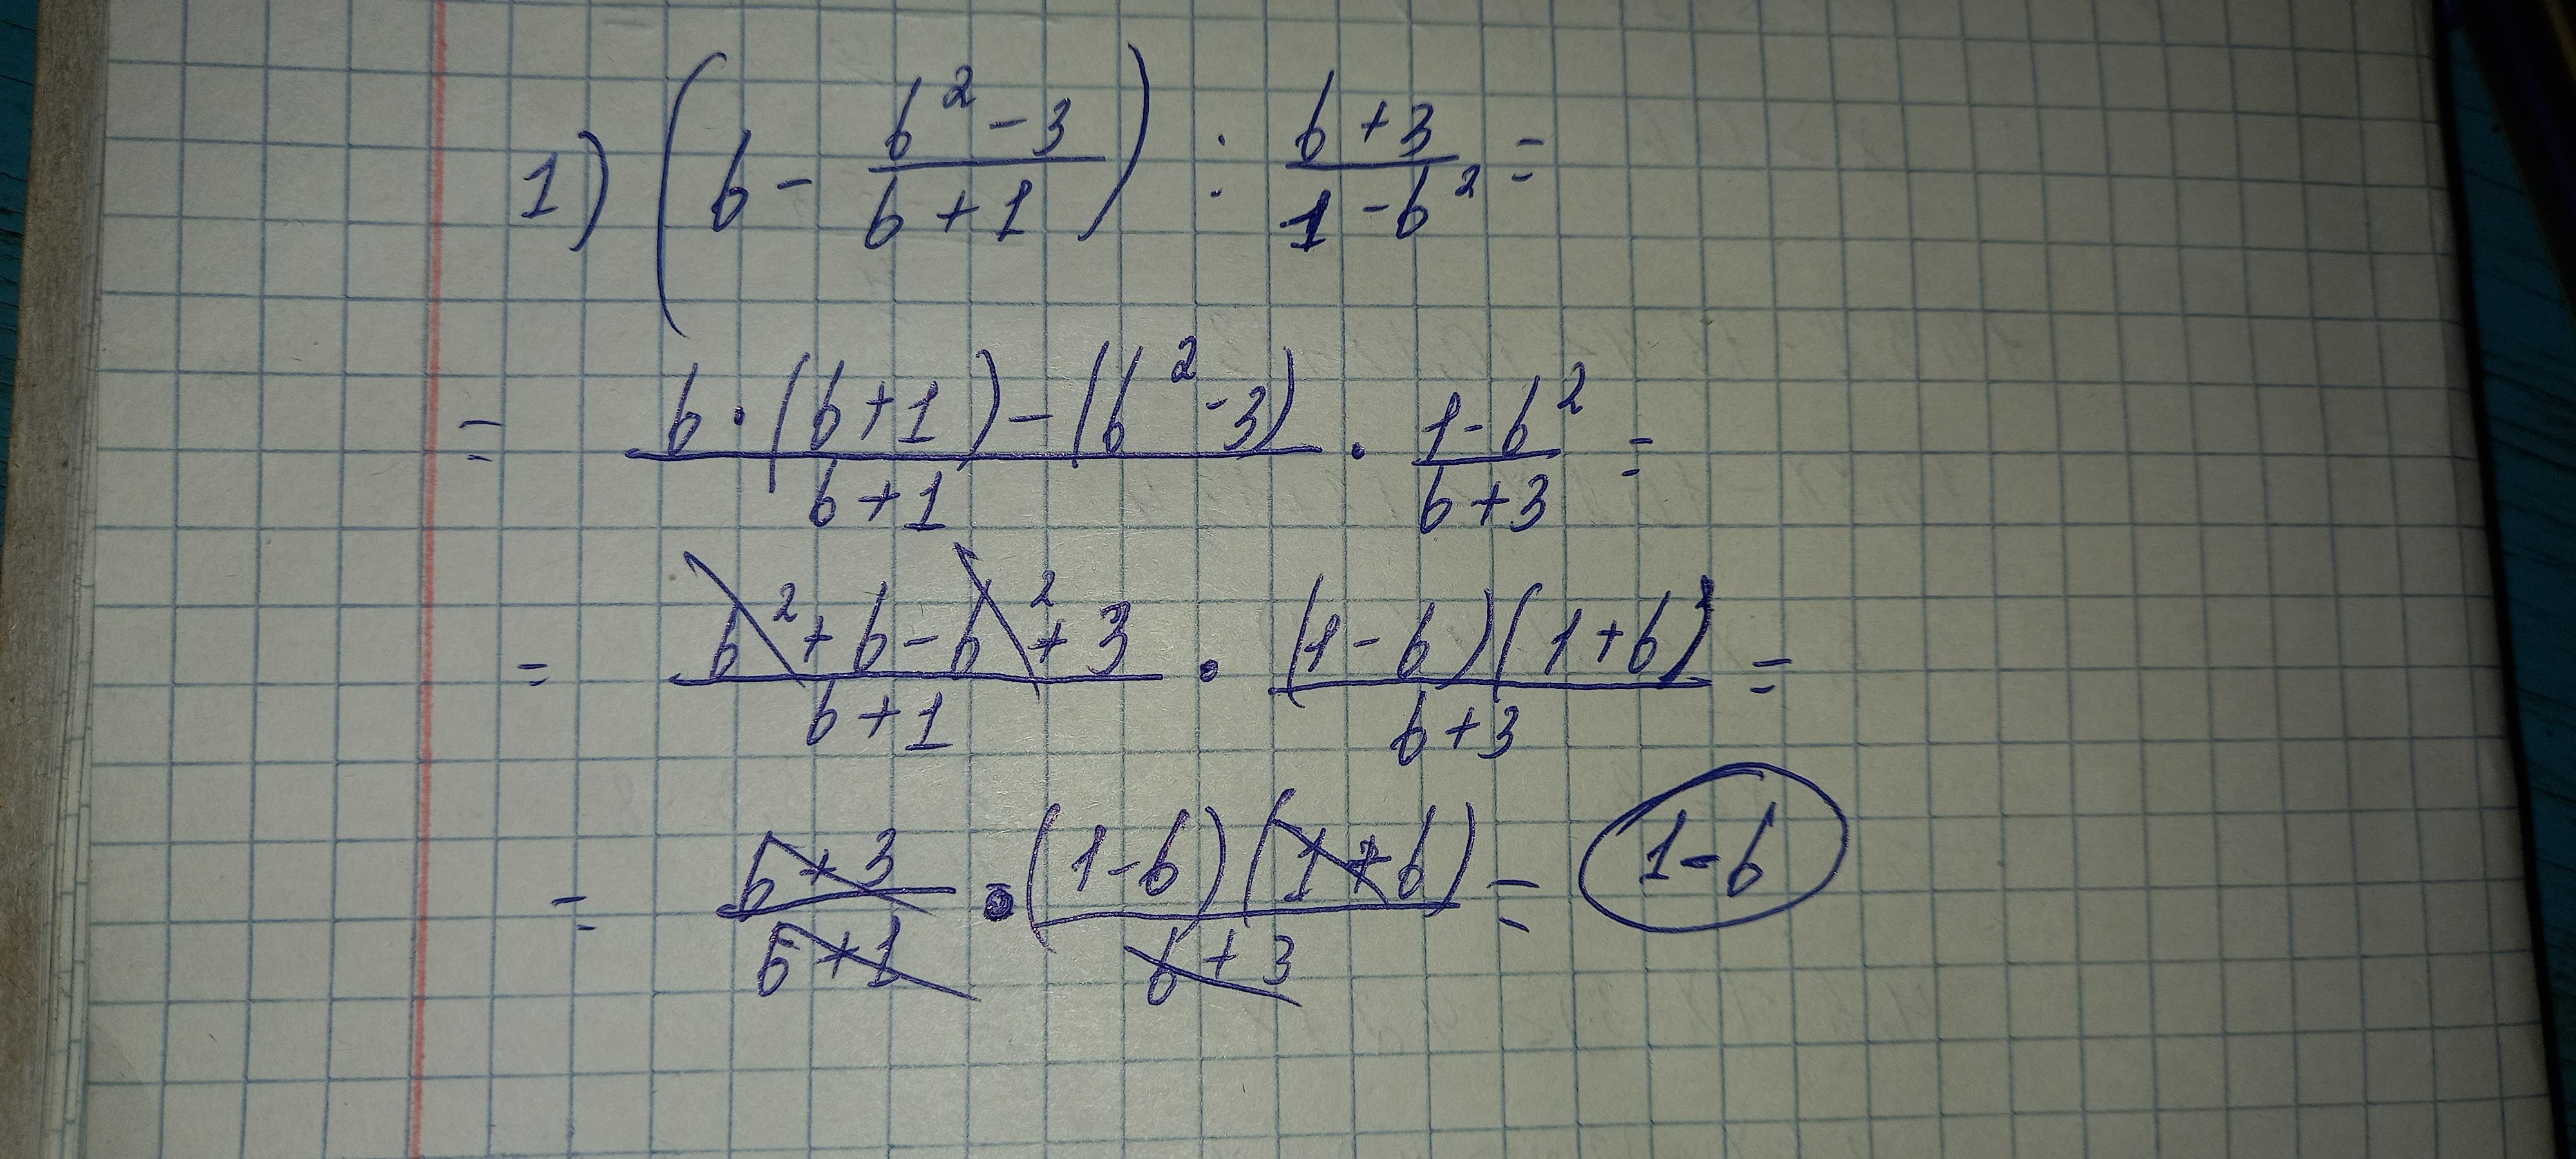 1) (b - \frac{b² - 3}{b + 1}) : \frac{b + 3}{1 - b²} =
= \frac{b · (b + 1) - (b² - 3)}{b + 1} · \frac{1 - b²}{b + 3} =
= \frac{b² + b - b² + 3}{b + 1} · \frac{(1 - b)(1 + b)}{b + 3} =
= \frac{b + 3}{b + 1} · \frac{(1 - b)(1 + b)}{b + 3} = 1 - b